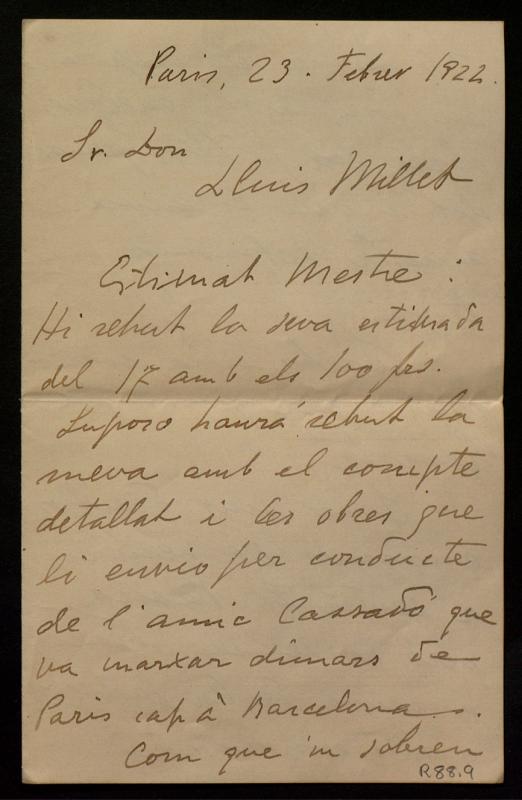 Paris, 23. Febrer 1922.
Sr. Don
Lluis Millet
Estimat Mestre:
Hi rebut la seva estimada
del 17 amb els 100 frs.
Suposo haurá rebut la
meva amb el compte
detallat i les obres que
li envio per conducte
de l'amic Cassadó que
va marxar dimars de
Paris cap à Barcelona.
Com que 'm sobren
R88.9